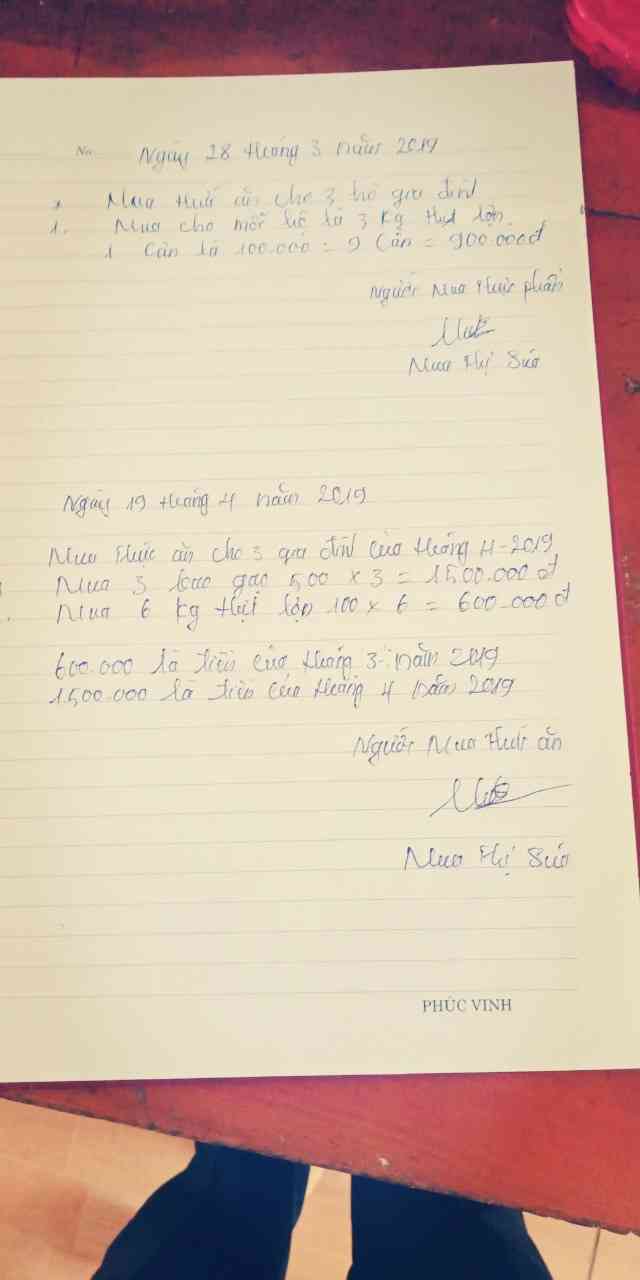 No:
Ngày 28 tháng 3 năm 2019
* Mua thức ăn cho 3 hộ gia đình
1. Mua cho mỗi hộ là 3 kg thịt lợn
1 Cân là 100.000 = 9 Cân = 900.000đ
Người Mua thực phẩm
Mua Thị Súa
Ngày 19 tháng 4 năm 2019
Mua thức ăn cho 3 gia đình của tháng 4-2019
Mua 3 bao gạo 500 x 3 = 1500.000đ
Mua 6 kg thịt lợn 100 x 6 = 600.000đ
600.000 là tiền của tháng 3 năm 2019
1.500.000 là tiền của tháng 4 năm 2019
Người Mua thức ăn
Mua Thị Súa
PHÚC VINH